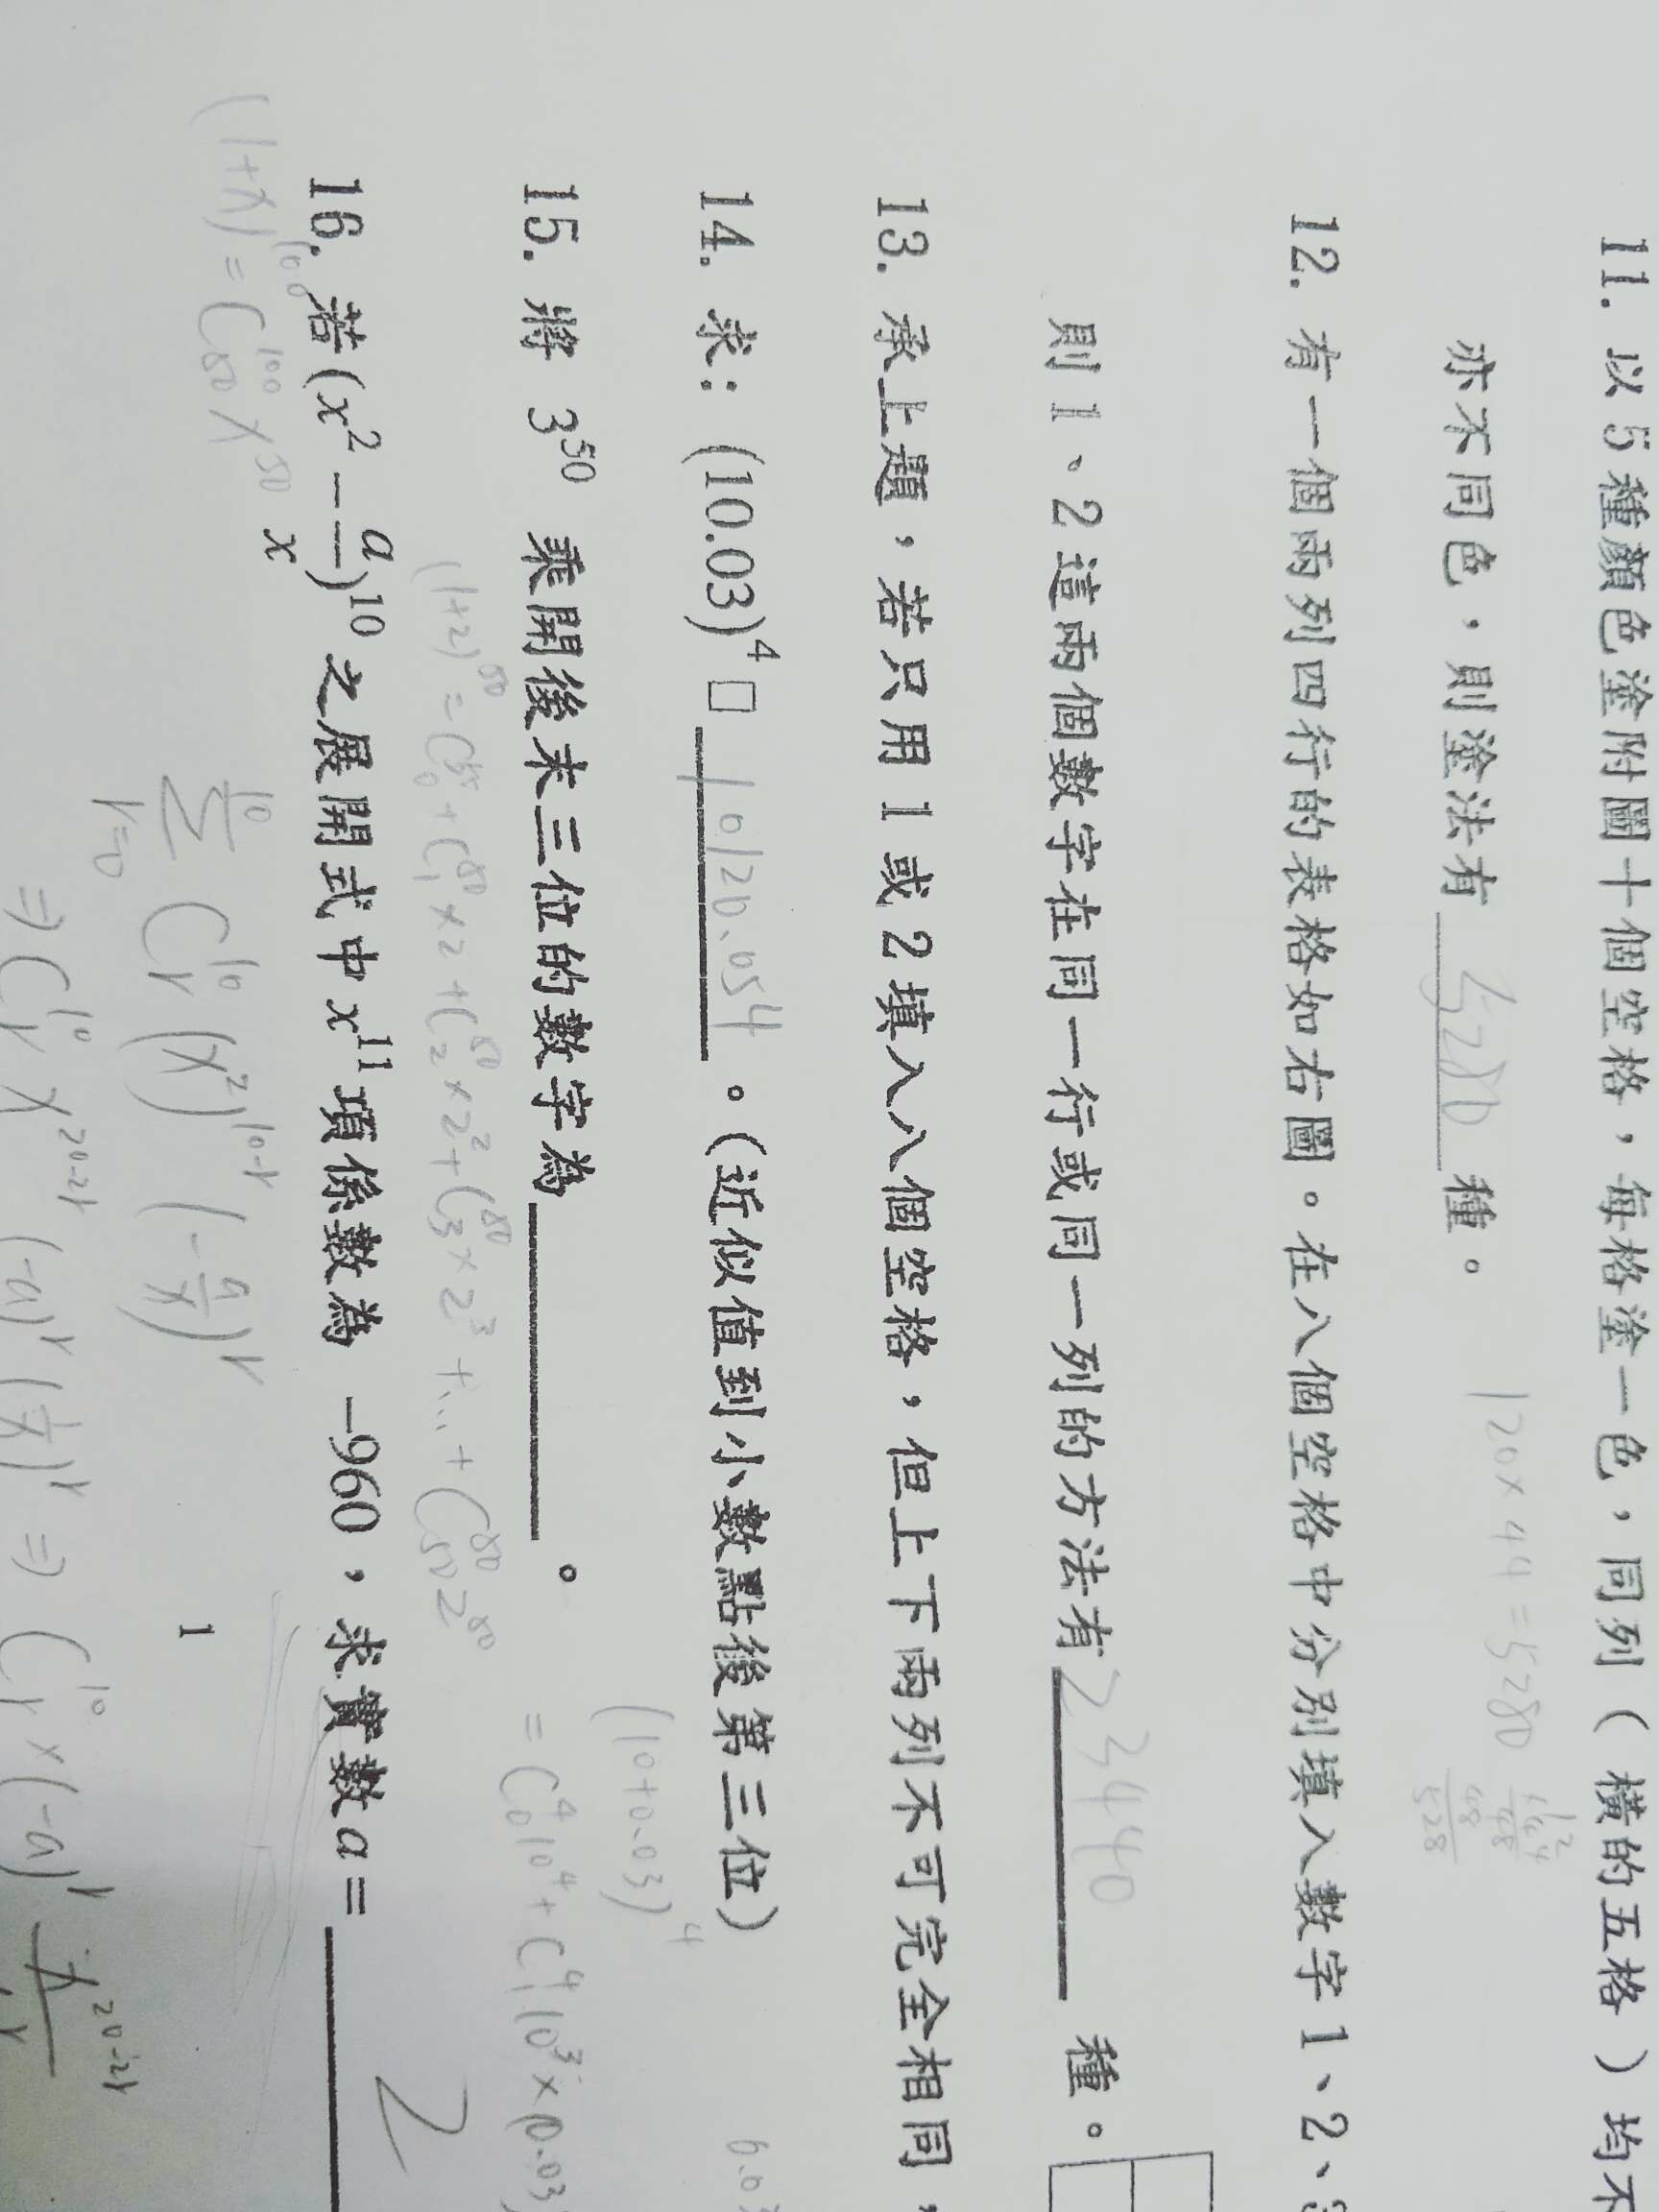 11. 以5種顏色塗附圖十個空格，每格塗一色，同列（橫的五格）均不
亦不同色，則塗法有 5280 種。
120×44=5280
12. 有一個兩列四行的表格如右圖。在八個空格中分別填入數字1、2、
則1、2這兩個數字在同一行或同一列的方法有 23440 種。
13. 承上題，若只用1或2填入八個空格，但上下兩列不可完全相同，
14. 求：(10.03)⁴□ 10120.054 。（近似值到小數點後第三位）
(10+0.03)⁴
=C⁴₀10⁴+C⁴₁10³×(0.03)
15. 將 3⁵⁰ 乘開後末三位的數字為 。
(1+2)⁵⁰=C⁵⁰₀+C⁵⁰₁×2+C⁵⁰₂×2²+C⁵⁰₃×2³+...+C⁵⁰₅₀2⁵⁰
16. 若(x²-a/x)¹⁰之展開式中x¹¹項係數為 -960，求實數a= 2
(1+x)¹⁰⁰=C¹⁰⁰₅₀x⁵⁰
10Σr=0 C¹⁰r (x²)¹⁰⁻ʳ (-a/x)ʳ
1
⇒C¹⁰r x²⁰⁻²ʳ (-a)ʳ (1/x)ʳ ⇒ C¹⁰r×(-a)ʳ